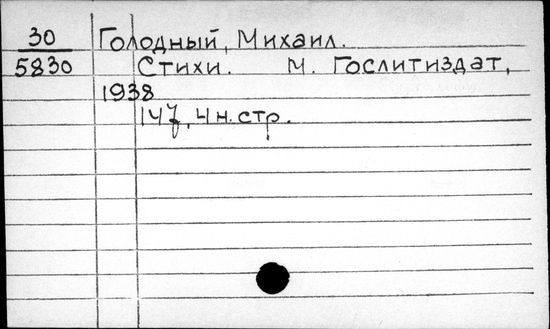 30 Голодный, Михаил.
5830 Стихи. М. Гослитиздат,
1938
147, 4 н. стр.